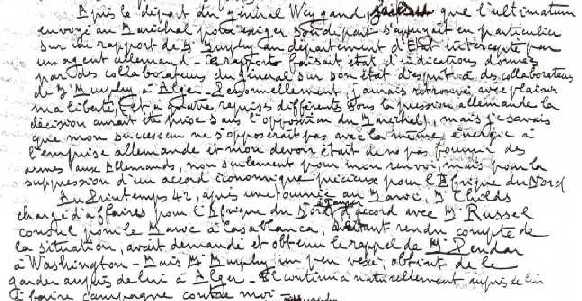 Après le départ du général Weygand je sus que l'ultimatum
envoyé au Maréchal pour exiger son départ s'appuyait en particulier
sur un rapport de Mr Murphy au département d'Etat intercepté par
un agent allemand - Ce rapport faisait état d'indications données
par des collaborateurs du général sur son état d'esprit à des collaborateurs
de Mr Murphy à Alger - Personnellement j'aurais retrouvé avec plaisir
ma liberté (et à quatre reprises différentes sous la pression allemande la
décision aurait été prise sans l'opposition du Maréchal), mais je savais
que mon successeur ne s'opposerait pas avec la même énergie à
l'emprise allemande et mon devoir était de ne pas fournir des
armes aux Allemands, non seulement pour mon renvoi mais pour la
suppression d'un accord économique précieux pour l'Afrique du Nord
Au Printemps 42, après une tournée au Maroc, Mr Childs
chargé d'affaires pour l'Afrique du Nord d'accord avec Mr Russel
consul pour le Maroc à Casablanca, s'étant rendu compte de
la situation, avait demandé et obtenu le rappel de Mr Pendar
à Washington - Mais Mr Murphy un peu vexé, obtint de le
garder auprès de lui à Alger - Il continua naturellement auprès de lui
à faire campagne contre moi -